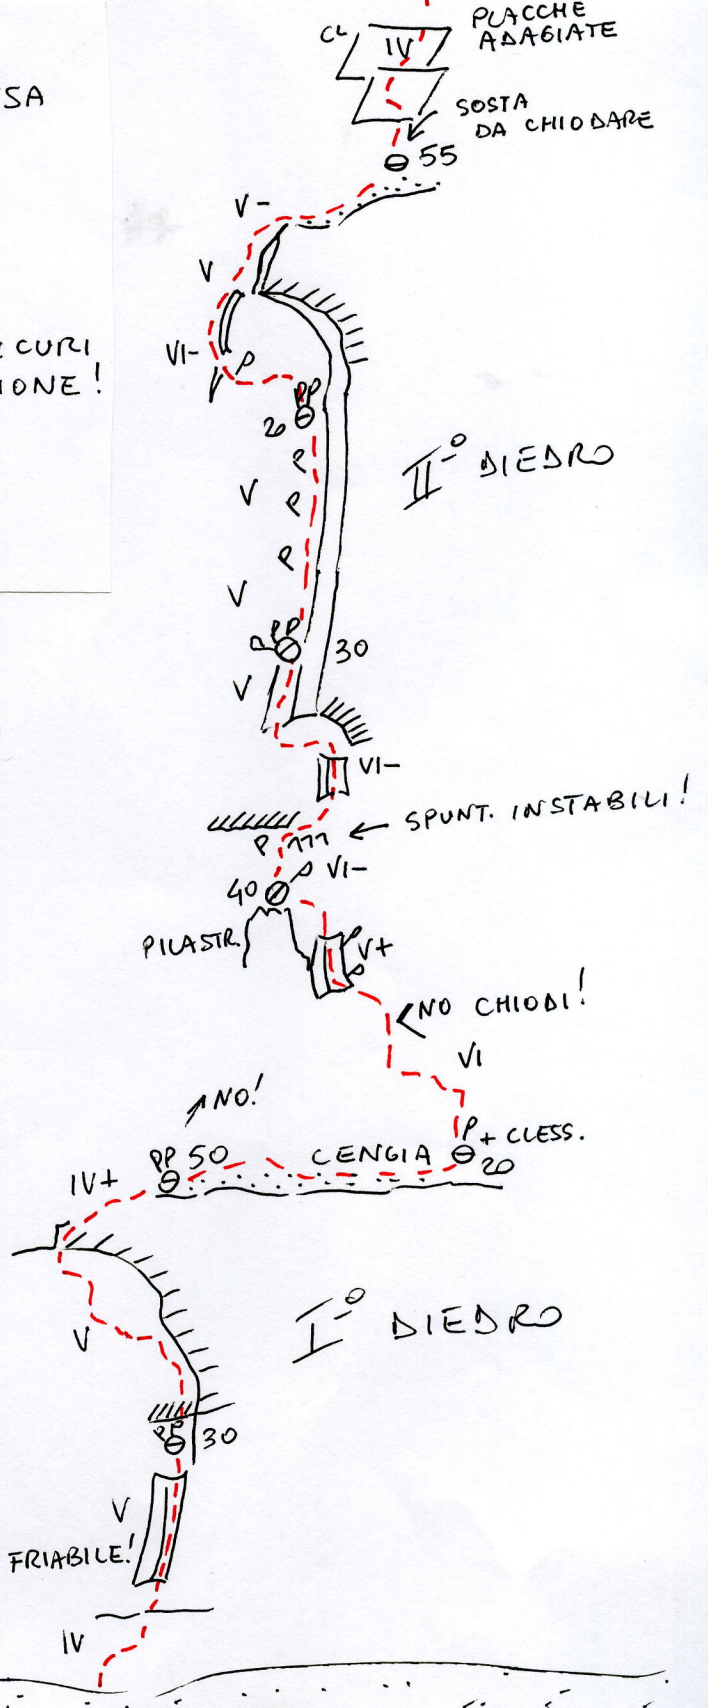 PLACCHE
ADAGIATE
CL
IV
SOSTA
DA CHIODARE
55
V-
V
VI-
P
PP
20
P
V
P
P
V
PP
30
V
II° DIEDRO
VI-
SPUNT. INSTABILI!
P
VI-
40
PILASTR.
V+
NO CHIODI!
VI
NO!
P + CLESS.
PP 50
CENGIA
20
IV+
I° DIEDRO
V
PP
30
V
FRIABILE!
IV
IONE!